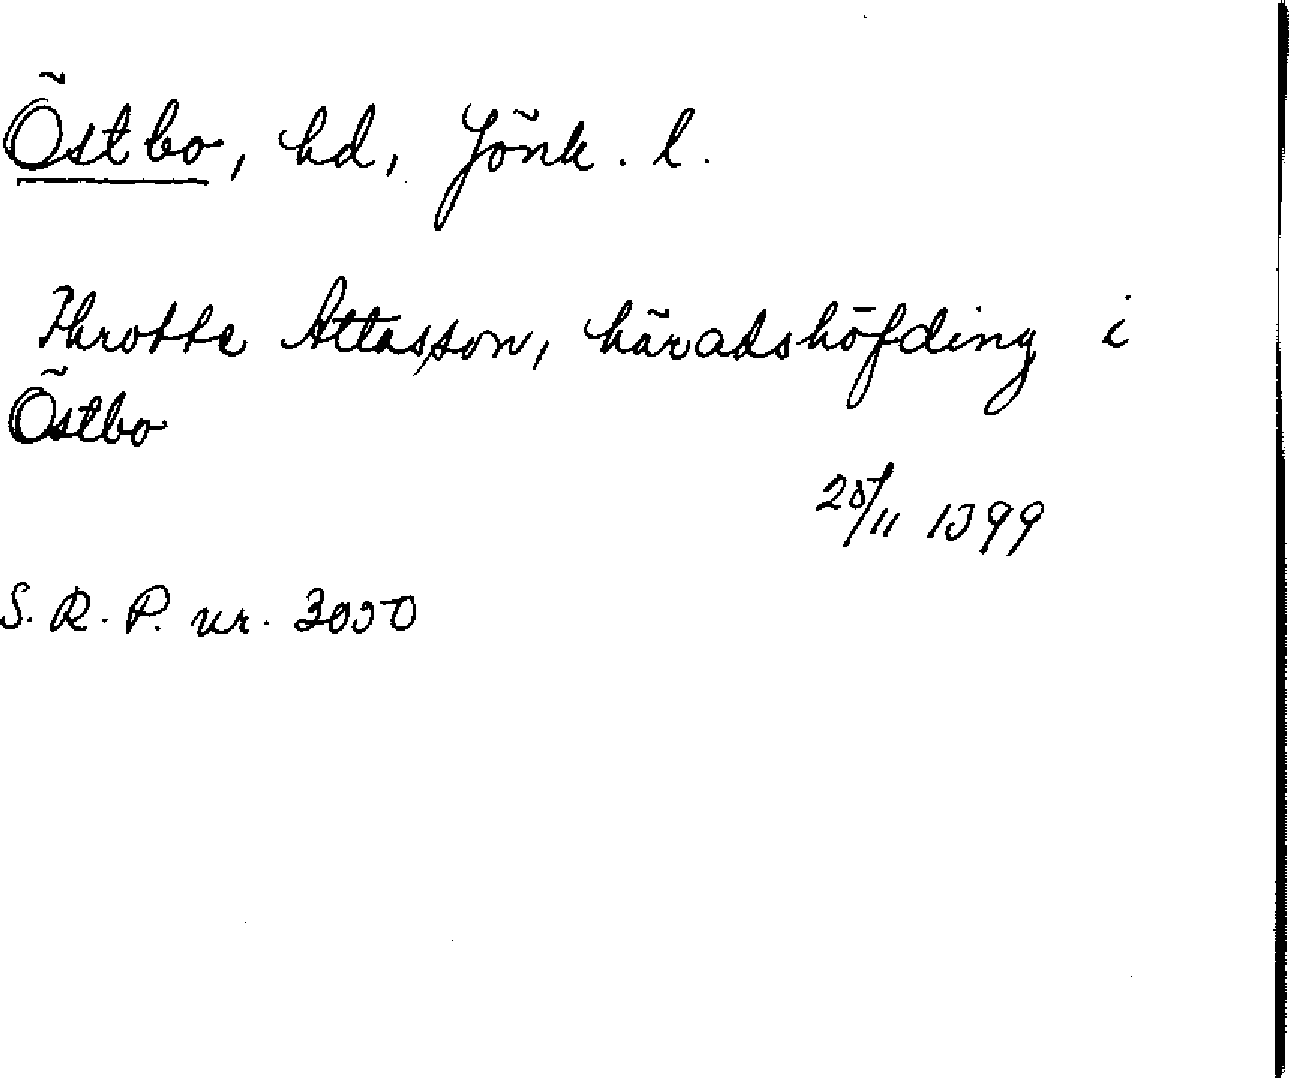 Östbo, hd, Jönk. l.
Throtte Attasson, häradshöfding i
Östbo
25/11 1399
S. R. P. nr. 3050